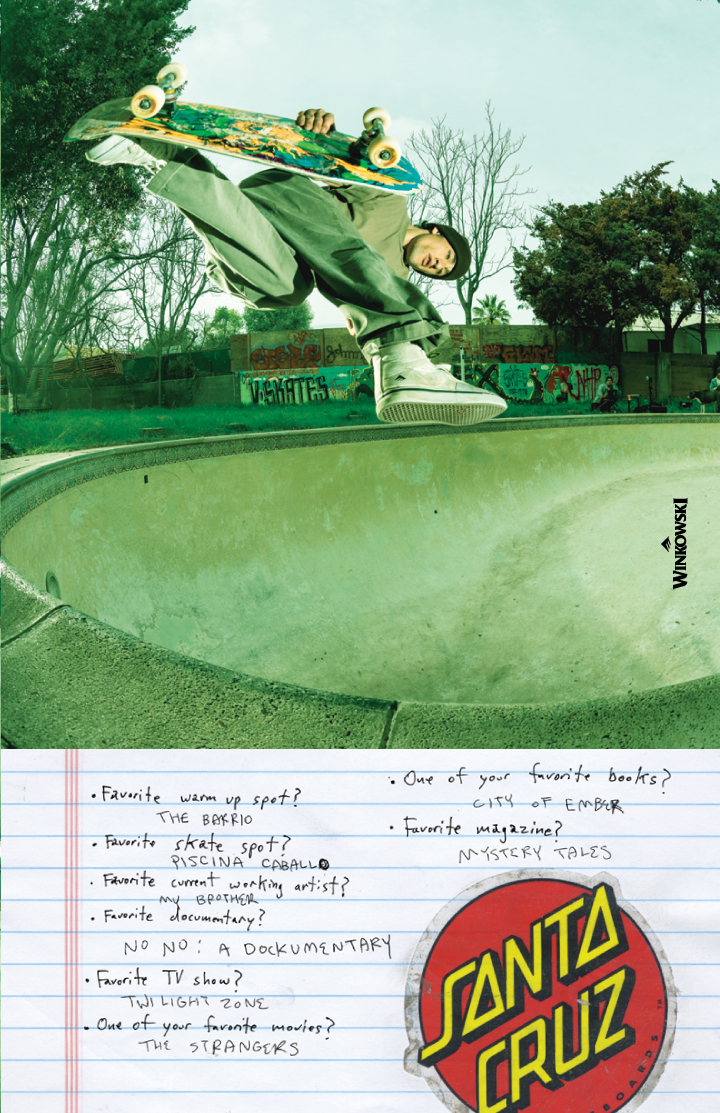 V.SKATES
NHP
WINKOWSKI
• Favorite warm up spot?
THE BARRIO
• Favorite skate spot?
PISCINA CABALLO
• Favorite current working artist?
MY BROTHER
• Favorite documentary?
NO NO: A DOCKUMENTARY
• Favorite TV show?
TWILIGHT ZONE
• One of your favorite movies?
THE STRANGERS
• One of your favorite books?
CITY OF EMBER
• Favorite magazine?
MYSTERY TALES
SANTA
CRUZ
BOARDS